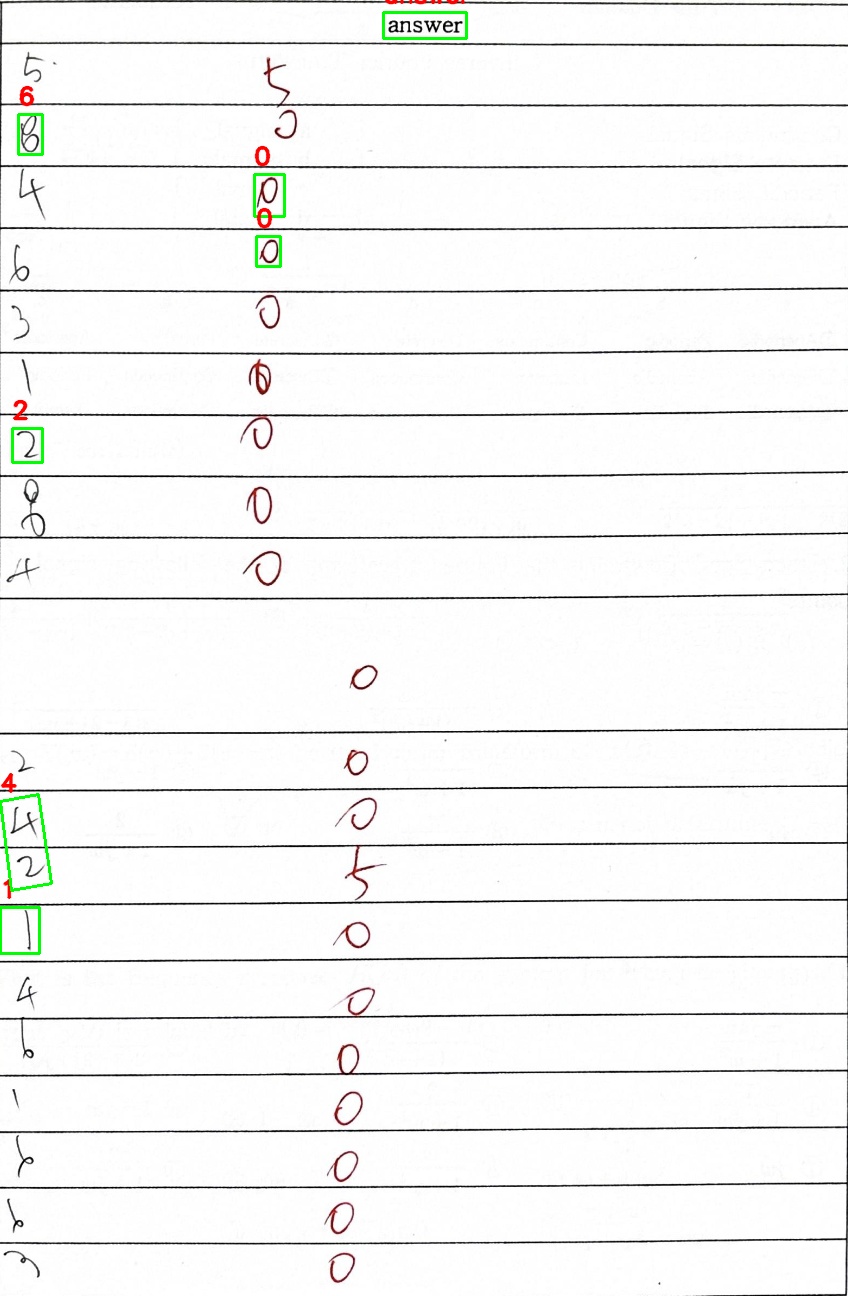 answer
answer
5 5
6
8 0
0
4 0
0
6 0
3 0
1 0
2
2 0
8 0
4 0
0
2 0
4
4 0
2 5
1
1 0
4 0
6 0
1 0
6 0
6 0
3 0